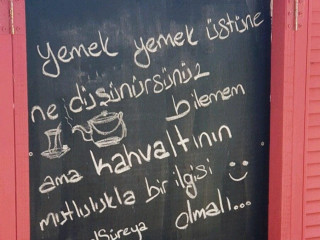 yemek yemek üstüne
ne düşünürsünüz
bilemem
ama kahvaltının
mutlulukla bir ilgisi
olmalı...
Süreya